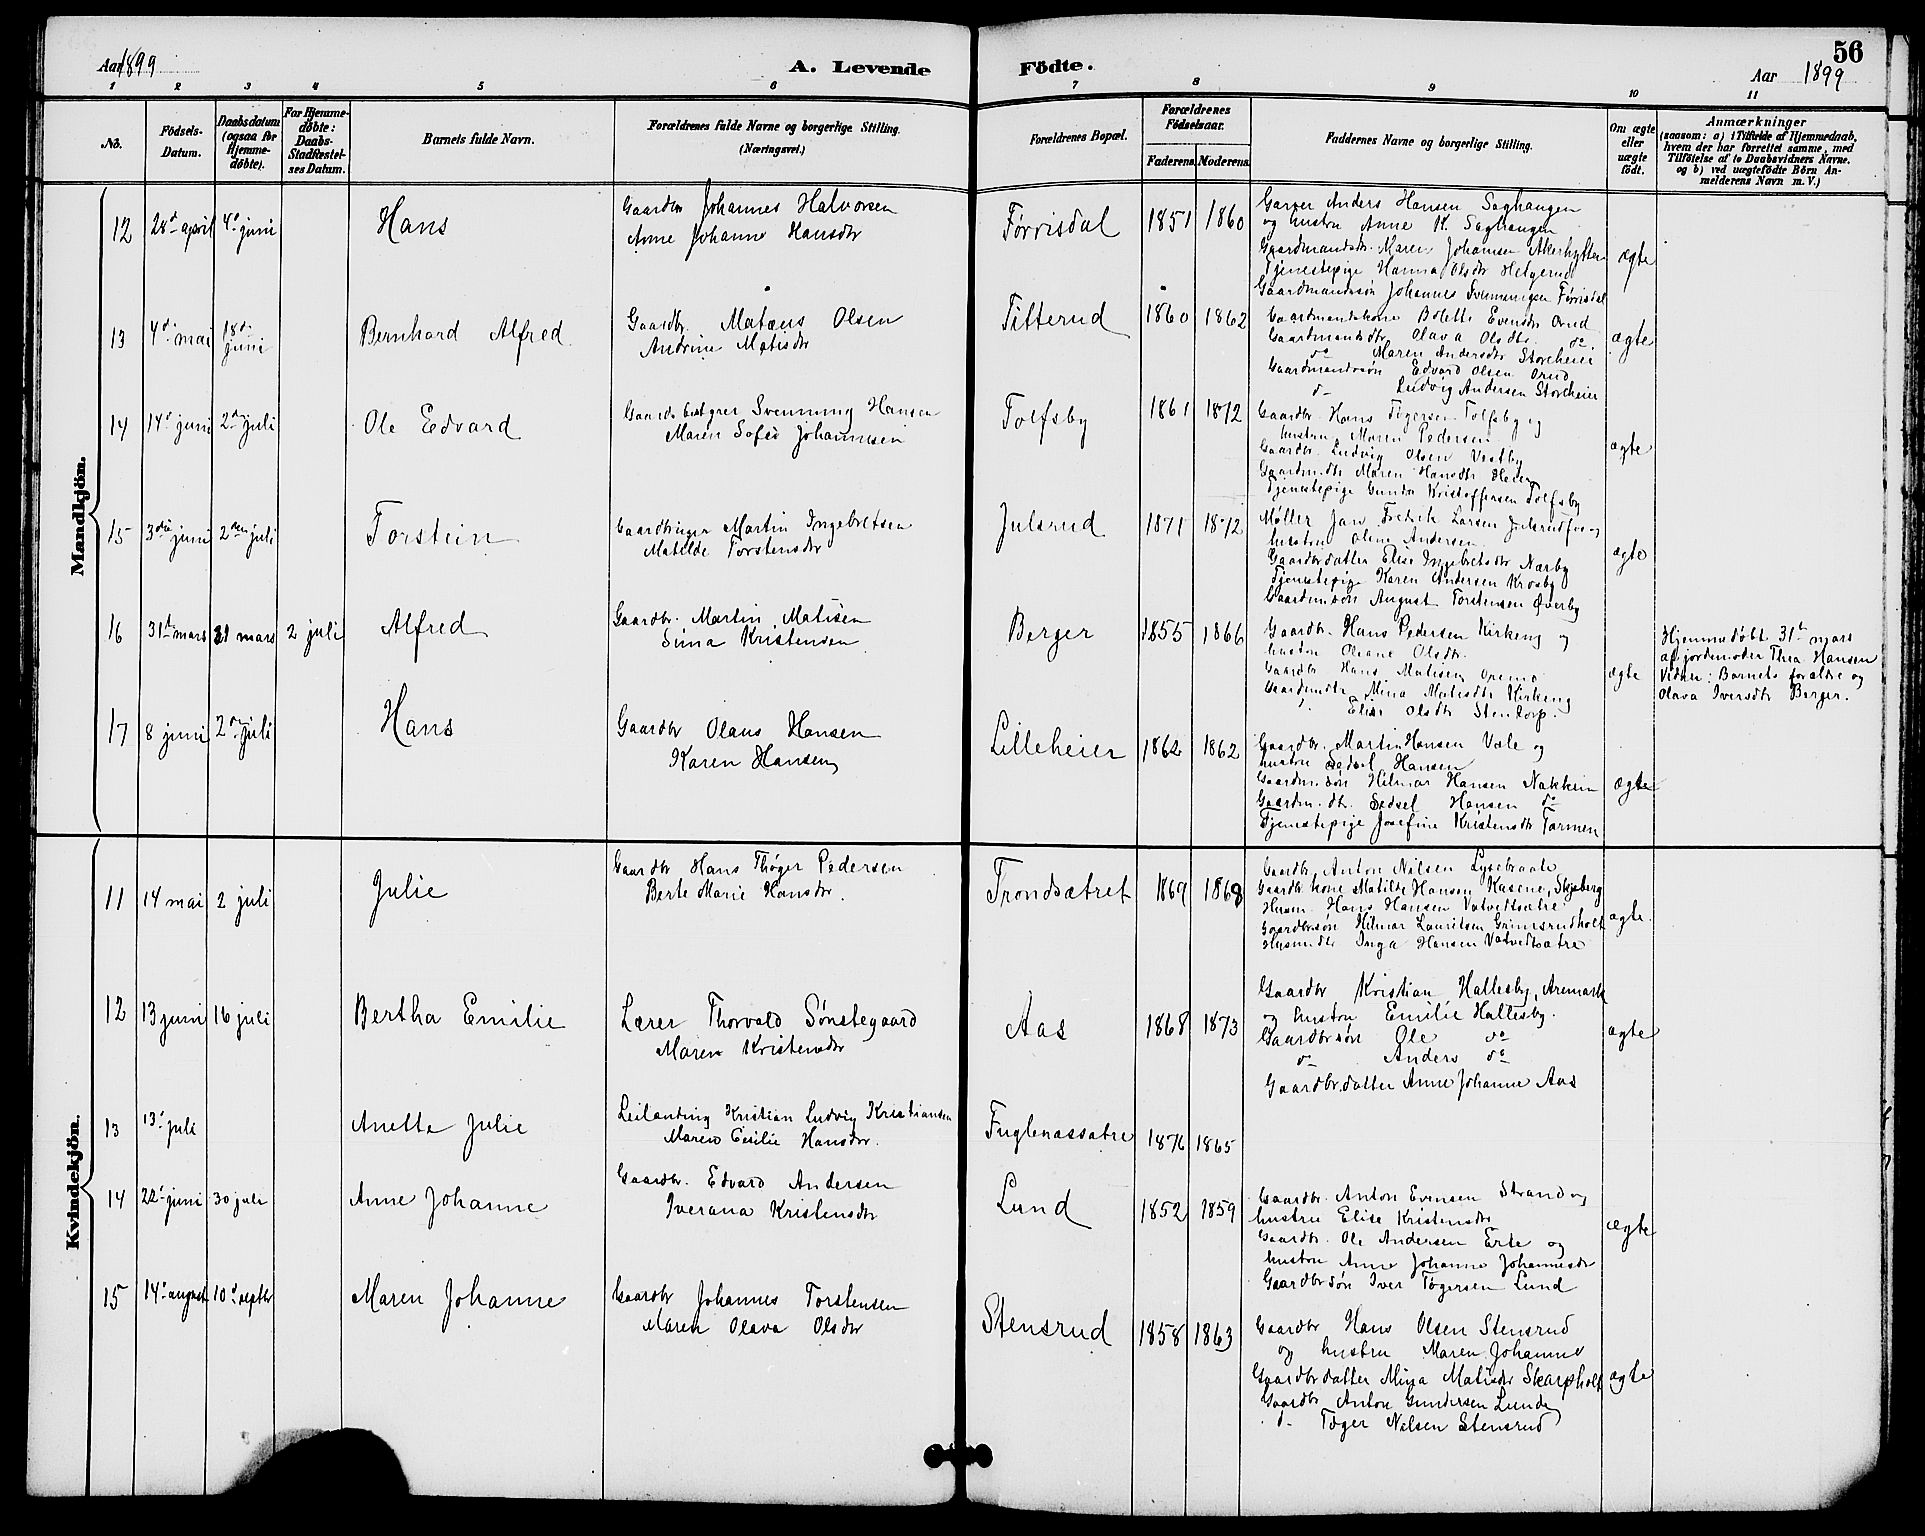 56
Aar 1899
A. Levende
Födte.
Aar 1899
1 2 3 4 5 6 7 8 9 10 11
No.
Födsels-
Datum.
Daabsdatum
(ogsaa for
Hjemme-
döbte).
For Hjemme-
döbte:
Daabs-
Stadfæstel-
ses Datum.
Barnets fulde Navn.
Forældrenes fulde Navne og borgerlige Stilling.
(Næringsvei.)
Forældrenes Bopæl.
Forældrenes
Födselsaar.
Faderens. Moderens.
Faddernes Navne og borgerlige Stilling.
Om ægte
eller
uægte
födt.
Anmærkninger
(saasom: a) i Tilfælde af Hjemmedaab,
hvem der har forrettet samme, med
Tilföielse af to Daabsvidners Navne.
og b) ved uægtefödte Börn An-
melderens Navn m. V.)
Mandkjön.
12 28d april 4d juni Hans
Gaardbr Johannes Halvorsen
Anne Johanne Hansdtr
Førrisdal 1851 1860
Garver Anders Hansen Saghaugen
og hustru Anne K. Saghaugen
Gaardmandsdtr. Maren Johansen Akerhytten
Tjenestepige Hanna Olsdtr Helgerud
Gaardmandssøn Johannes Svenningsen Førrisdal
ægte
13 4d mai 18d juni Bernhard Alfred
Gaardbr. Matæus Olsen
Andrine Matisdtr
Titterud 1860 1862
Gaardmandskone Bolette Evensdtr Orud
Gaardmandsdtr. Olava Olsdtr. do.
do Maren Andersdtr Storeheier
Gaardmandssøn Edvard Olsen Orud
d- Ludvig Andersen Storeheier
ægte
14 14d juni 2d juli Ole Edvard
Gaardbestyrer Svenning Hansen
Maren Sofie Johannesen
Tolfsby 1861 1872
Gaardbr. Hans Tøgersen Tolfsby og
hustru Maren Pedersen
Gaardbr. Ludvig Olsen Vestby
Gaardm.dtr Maren Hansdtr Heier
Tjenestepige Gunda Kristoffersen Tolfsby
ægte
15 3die juni 2den juli Torstein
Gaardbruger Martin Ingebretsen
Matilde Torstensdtr
Julsrud 1871 1872
Møller Jan Fredrik Larsen Julsrudfos og
hustru Oline Andersen
Gaardbr.datter Elise Ingebretsdtr Nærby
Tjenestepige Karen Andersen Krosby
Gaardm.søn August Torstensen Øverby
ægte
16 31te mars 31 mars 2 juli Alfred
Gaardbr. Martin Matisen
Sina Kristensen
Berger 1855 1866
Gaardbr. Hans Pedersen Kirkeng og
hustru Oleane Olsdtr.
Gaardbr Hans Matisen Oremo
Gaardmdtr Mina Matisdtr Kirkeng
Elise Olsdtr Stentorp.
ægte
Hjemmedøbt 31te mars
af jordemoder Thea Hansen
Vidner: Barnets forældre og
Olava Iversdtr Berger.
17 8 juni 2den juli Hans
Gaardbr Olaus Hansen
Karen Hansen
Lilleheier 1862 1862
Gaardbr. Martin Hansen Vale og
hustru Sedsel Hansen
Gaardm.søn Hilmar Hansen Nakkim
Gaardm.dtr. Sedsel Hansen do
Tjenestepige Josefine Kristensdtr Tormen
ægte
Kvindekjön.
11 14 mai 2 juli Julie
Gaardbr Hans Thøger Pedersen
Berte Marie Hansdtr.
Trondsætret 1869 1868
Gaardbr. Anton Nilsen Lysebraate
Gaardbr.kone Matilde Hansen Kasene, Skjeberg
Husm. Hans Hansen Vatvedtsætre
Gaardbr.søn Hilmar Lauritsen Grimsrudholt
Husmdtr Inga Hansen Vatvedtsætre
ægte.
12 13 juni 16 juli Bertha Emilie
Lærer Thorvald Sønstegaard
Maren Kristensdtr
Aas 1868 1873
Gaardbr Kristian Hallesby, Aremark
og hustru Emilie Hallesby.
Gaardbrsøn Ole do
d- Anders do
Gaardbr.datter Anne Johanne Aas
ægte
13 13d juli Anette Julie
Leilænding Kristian Ludvig Kristiansen
Maren Cecilie Hansdtr.
Fuglenassætre 1876 1865
14 22d juni 30 juli Anne Johanne
Gaardbr. Edvard Andersen
Iverana Kristensdtr
Lund 1852 1859
Gaardbr. Anton Evensen Strand og
hustru Elise Kristensdtr
Gaardbr. Ole Andersen Erte og
hustru Anne Johanne Johannesdtr
Gaardbrsøn Iver Tøgersen Lund
ægte
15 14d august 10d septbr Maren Johanne
Gaardbr Johannes Torstensen
Maren Olava Olsdtr
Stensrud 1858 1863
Gaardbr Hans Olsen Stensrud
og hustru Maren Johanne
Gaardbrdatter Mina Matisdtr Skarpholt
Gaardbr Anton Gundersen Lunde
d- Tøger Nilsen Stensrud
ægte